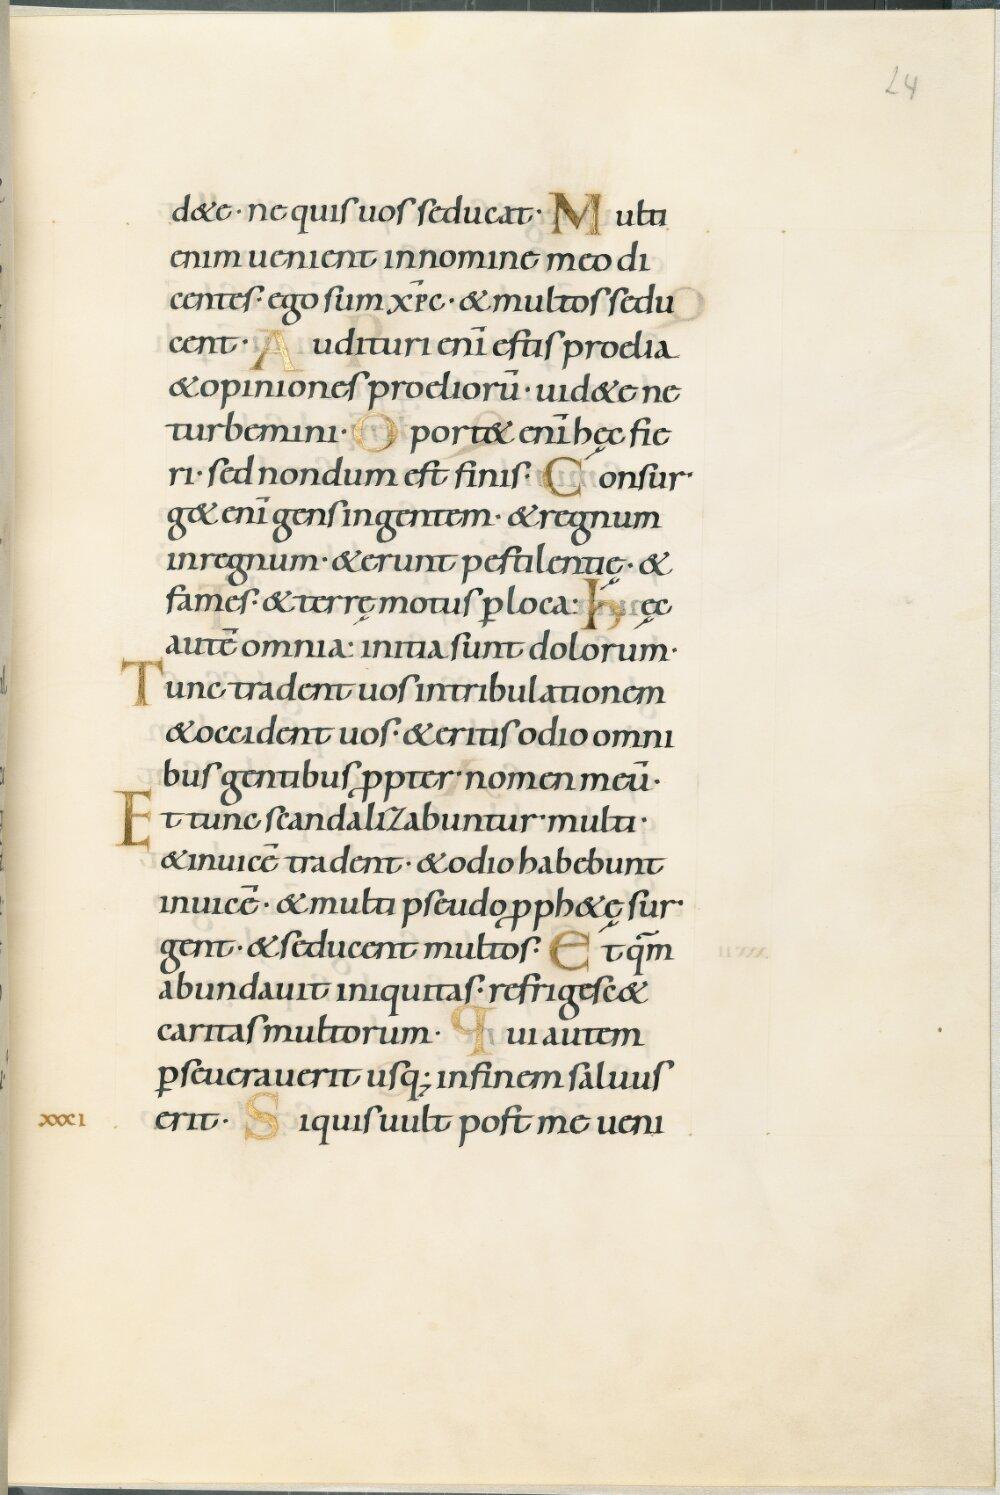 24
d&e · ne quis uos seducat · Multi
enim uenient in nomine meo di
centes · ego sum xp̄c · & multos sedu
cent · Audituri enī estis proelia
& opiniones proeliorū · uid&e ne
turbemini · Oport& enī hęc fie
ri · sed nondum est finis · Consur·
g& enī gens in gentem · & regnum
in regnum · & erunt pestilentię · &
fames · & terrę motus ꝑ loca : hęc
autē omnia : initia sunt dolorum ·
Tunc tradent uos in tribulationem
& occident uos · & eritis odio omni
bus gentibus ꝓpter · nomen meū ·
Et tunc scandalizabuntur · multi ·
& inuicē tradent · & odio habebunt
inuicē · & multi pseudo ꝓph&ę sur·
gent · & seducent multos · Et qm̄
abundauit iniquitas · refrigesc&
caritas multorum · qui autem
ꝑseuerauerit usq; in finem saluus
xxxci erit · Si quis uult post me ueni